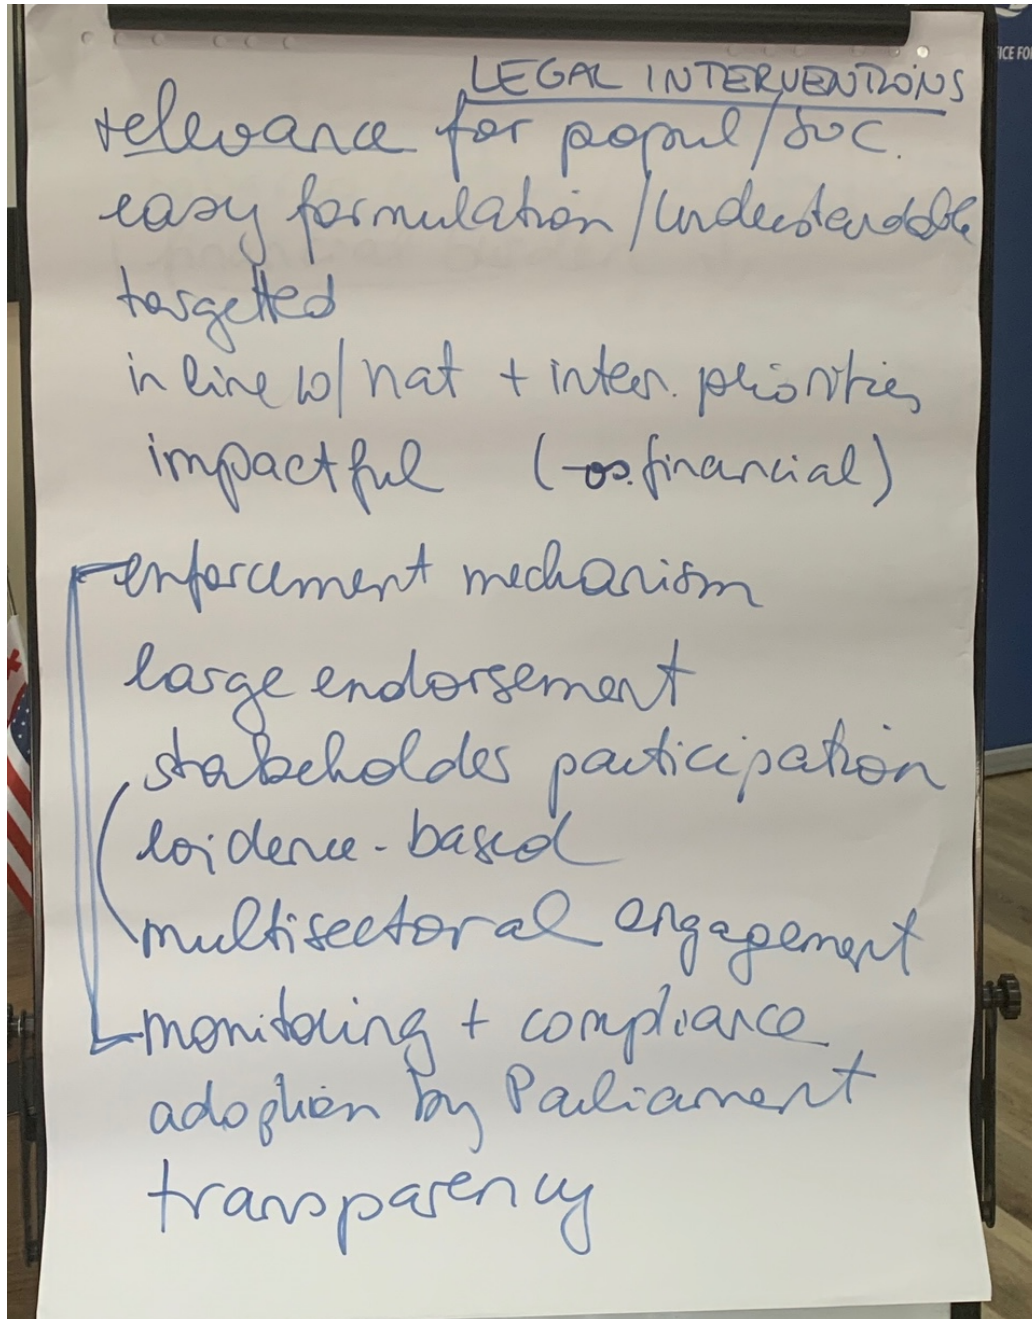 LEGAL INTERVENTIONS
relevance for popul/soc.
easy formulation/understandable
targetted
in line w/ nat + inter. priorities
impactful (financial)
enforcement mechanism
large endorsement
stakeholder participation
evidence-based
multisectoral engagement
monitoring + compliance
adoption by Parliament
transparency
ICE FO